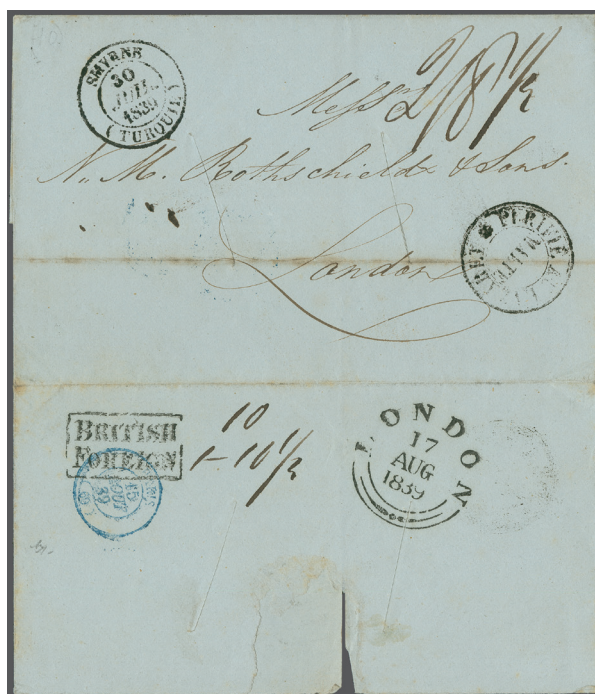 SMYRNE
30
JUIL.
1839
(TURQUIE)
Mess
2/8 1/2
N. M. Rothschild & Sons.
London
PURIFIÉ AU LAZARET
MALTE
BRITISH
FOREIGN
10
1-10 1/2
LONDON
17
AUG
1839
PARIS
15
AOUT
39
(60)